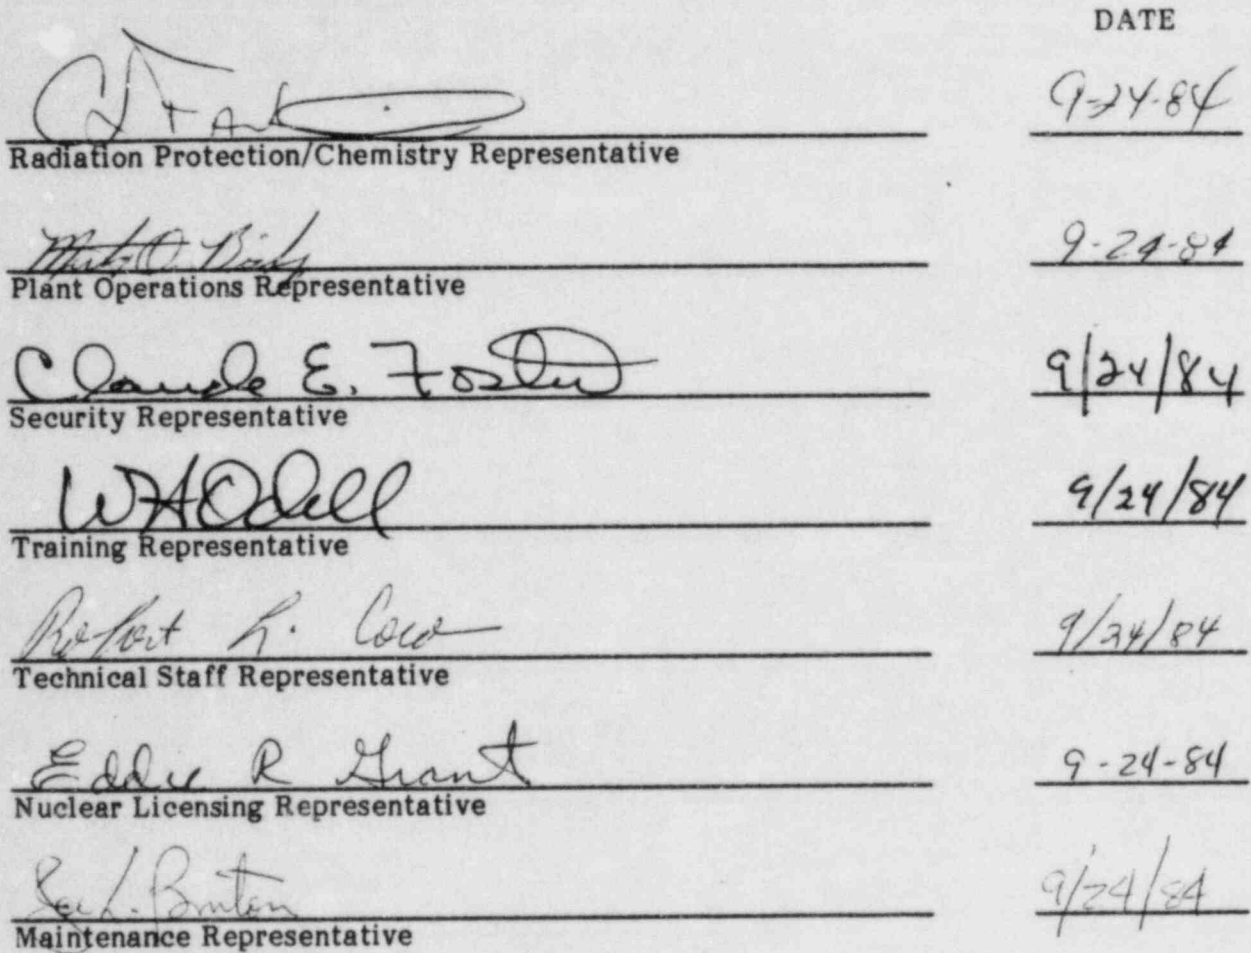 DATE
9-24-84
Radiation Protection/Chemistry Representative
9-24-84
Plant Operations Representative
Claude E. Foster 9/24/84
Security Representative
WAOdell 9/24/84
Training Representative
Robert L. 9/24/84
Technical Staff Representative
Eddie R Grant 9-24-84
Nuclear Licensing Representative
L. 9/24/84
Maintenance Representative